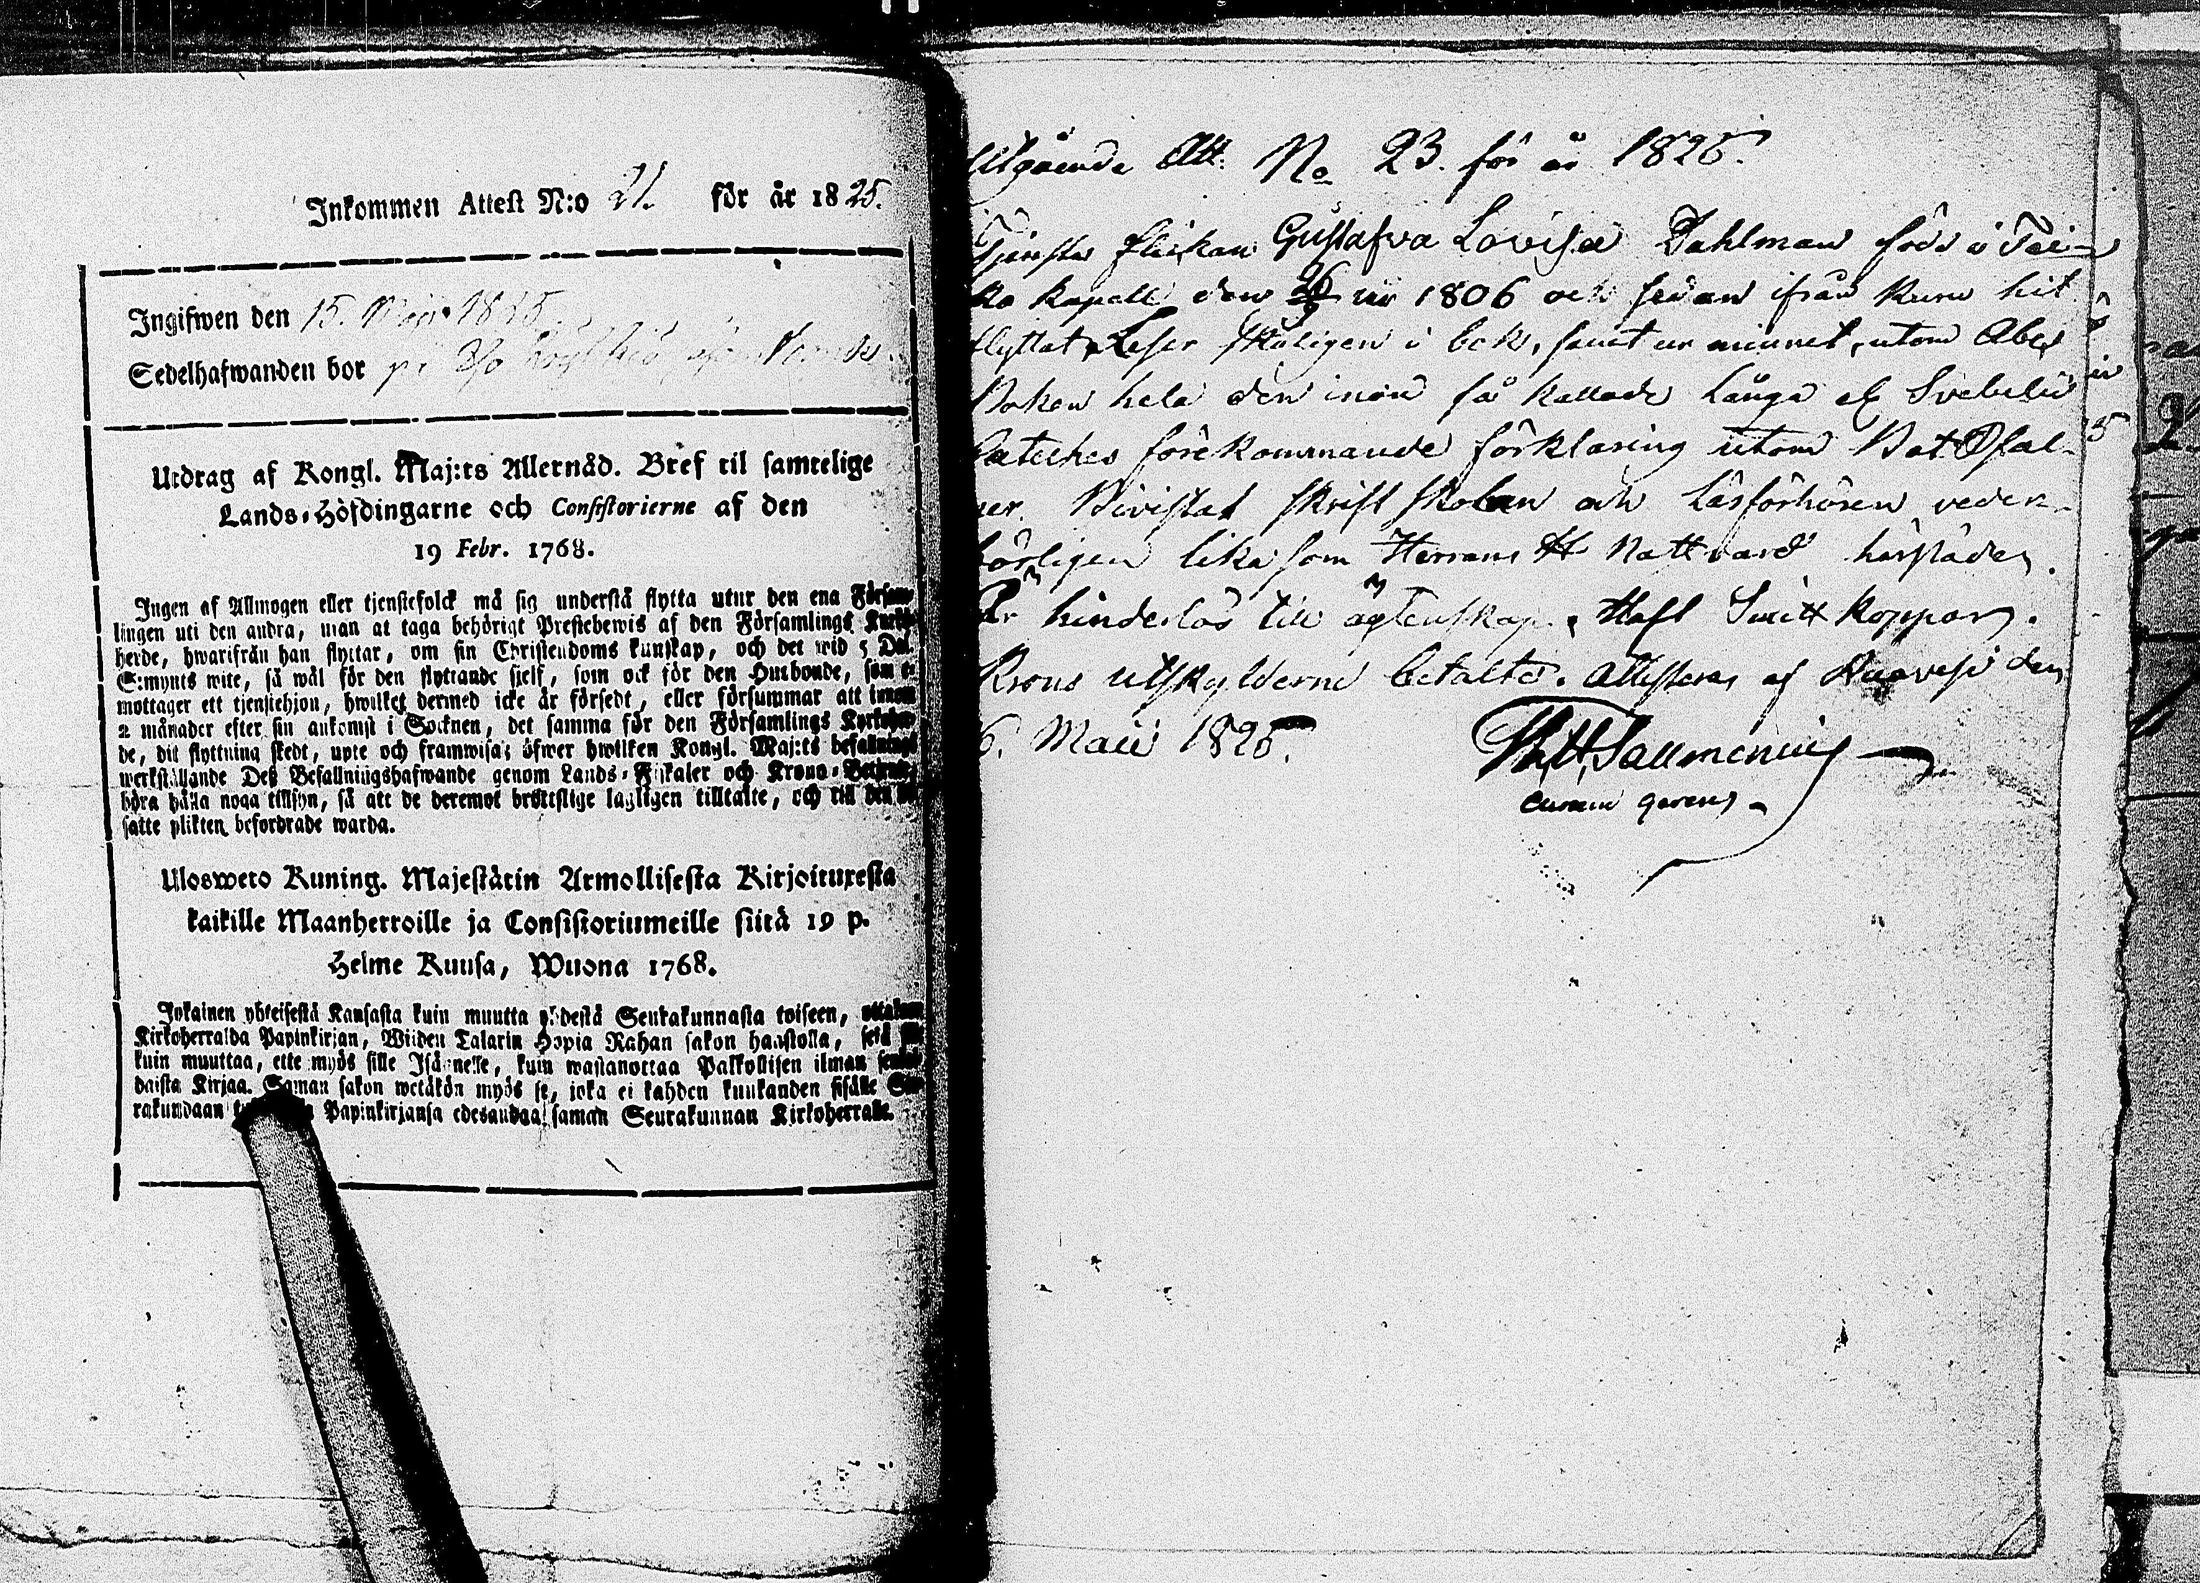 Inkommen Attest N:o 21. för år 1825.
Ingifwen den 15. Maji 1825.
Sedelhafwanden bor
Utdrag af Kongl. Maj:ts Allernåd. Bref til samtelige
Lands-Höfdingarne och Consistorierne af den
19 Febr. 1768.
Ingen af Allmogen eller tjenstefolck må sig understå flytta utur den ena Försam-
lingen uti den andra, utan at taga behörigt Prestebewis af den Församlings Kyrko-
herde, hwarifrån han flyttar, om sin Christendoms kunskap, och det wid 5 Dal.
S:mynts wite, så wäl för den flyttande sjelf, som ock för den Husbonde, som
mottager ett tjenstehjon, hwilket dermed icke är försedt, eller försummar att innom
2 månader efter sin ankomst i Socknen, det samma för den Församlings Kyrkoher-
de, dit flyttning skedt, upte och framwisa; öfwer hwilken Kongl. Maj:ts befallnings
werkställande Deß Befallningshafwande genom Lands-Fiskaler och Krono-Betjente
böra hålla noga tillsyn, så att de deremot brottslige lagligen tilltalte, och till den
satte plikten befordrade warda.
Uloswето Kuning. Majestätin Armollisesta Kirjoituxesta
kaikille Maanherroille ja Consistoriumeille siitä 19 p.
Helme Kuusa, Wuona 1768.
Jokainen yhteisestä Kansasta kuin muutta yhdestä Seurakunnasta toiseen, ottakon
Kirkoherralda Papinkirjan, Wiiden Talarin Hopia Rahan sakon haastolla, sekä se
kuin muuttaa, ette myös sille Isännelle, kuin wastanottaa Palkollisen ilman sen-
daista Kirjaa. Saman sakon wetäkön myös se, joka ei kahden kuukanden sisälle Seu-
rakundaan Papinkirjansa edesandaa saman Seurakunnan Kirkoherralle.
Utgående Att. No 23. för år 1825.
Tjenste flickan Gustafva Lovisa Dahlman född i Tei-
ko kapell den 1806 och sedan ifrån Kuru hit
flyttat, Läser skäligen i bok, samt ur minnet, utom Abc
Boken hela den inom så kallade Långa af Svebelii
Cateches förekommande förklaring utom Bot Psal-
mer. Bivistat skrift skolan och Läsförhören veder-
börligen lika som Herrans H Nattvard härstädes.
Är hinderlös till ägtenskap. Haft Smitt koppor.
Krono utskylderne betalte. Attesteras af Ruovesi den
6. Maii 1825.
Salmenius
curam gerens